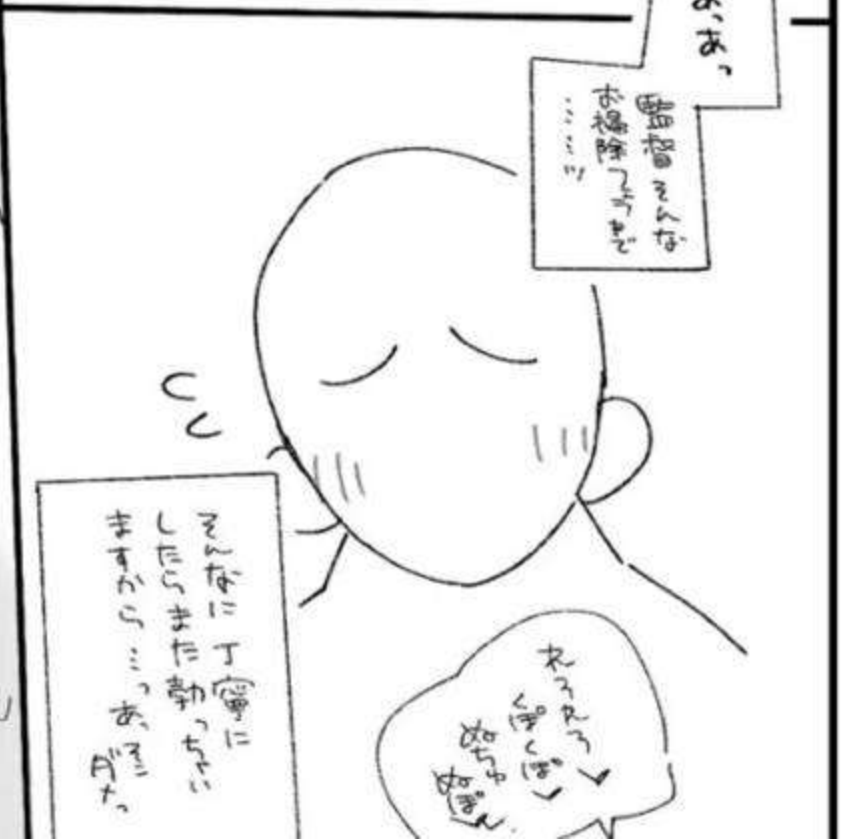 あっあっ
監督そんな
お掃除フェラまで
……ッ
そんなに丁寧に
したらまた勃っちゃい
ますから…っあっそこ
ダメっ
れろれろ
くぽくぽ♡
ぬちゅ♡
ぬぽん♡